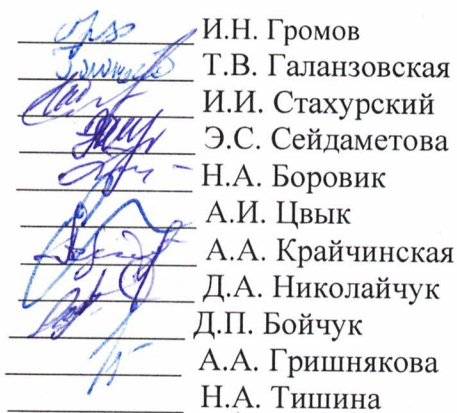 И.Н. Громов
Т.В. Галанзовская
И.И. Стахурский
Э.С. Сейдаметова
Н.А. Боровик
А.И. Цвык
А.А. Крайчинская
Д.А. Николайчук
Д.П. Бойчук
А.А. Гришнякова
Н.А. Тишина